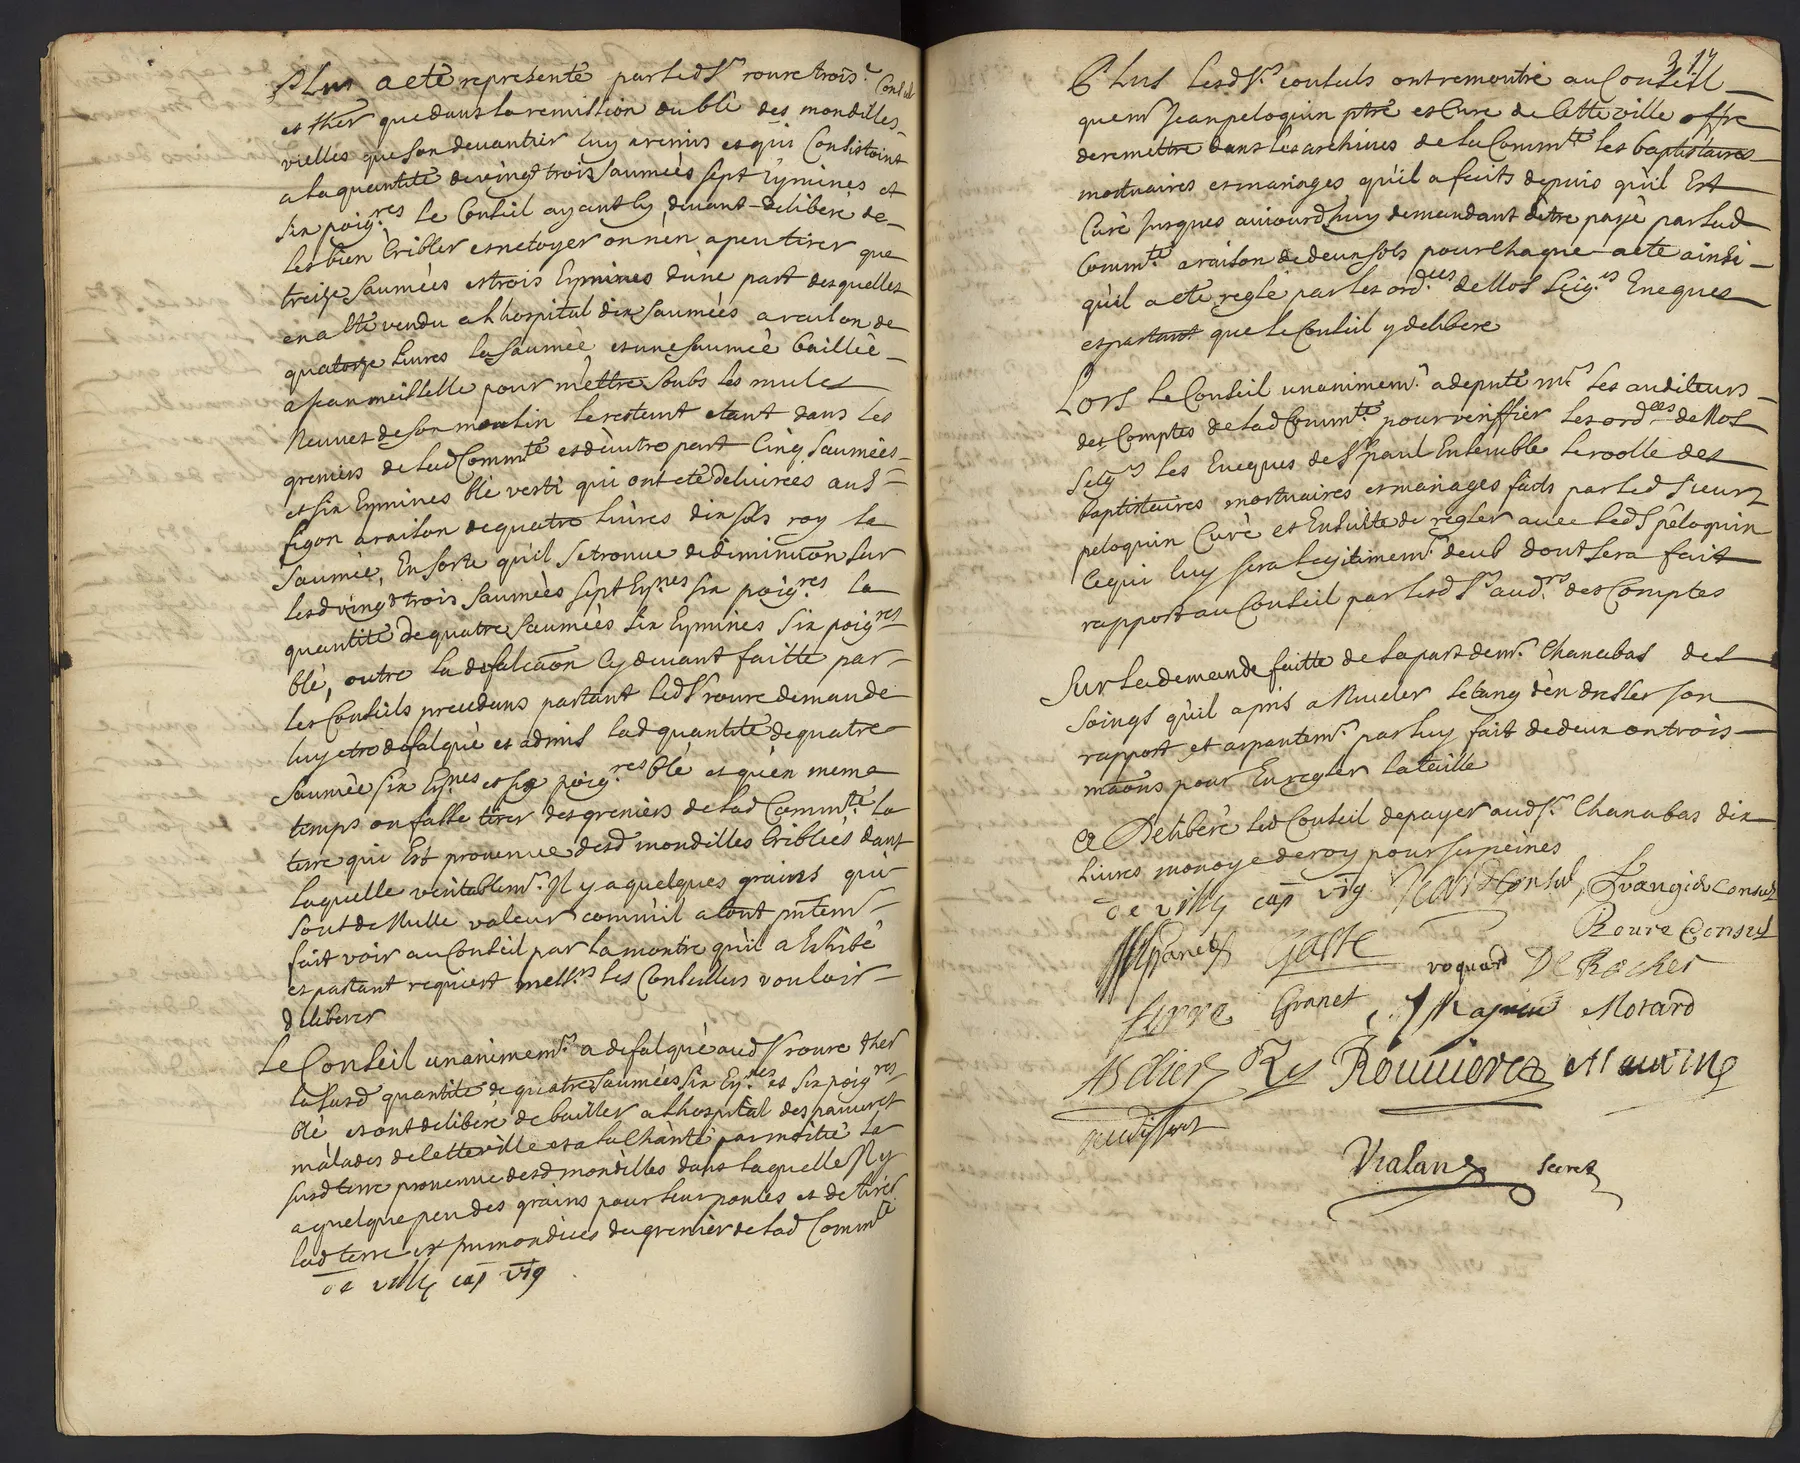 Plus a eté representé par led Sr roure troise. Consul
et ther que dans la remission du blé des mondilles
vielles que son devantier luy a remis et qui Consistoint
a la quantité de vingt trois saumées sept Eymines et
six poigres le Conseil ayant cy devant deliberé de
les bien Cribler et netoyer on n'en a peu tirer que
treize saumées et trois Eymines d'une part desquelles
en a eté vendu a l hospital dix saumées a raison de
quatorze livres la saumée et une saumée baillée
a Jean meisselle pour mettre soubs les mules
Neuves de son moulin le restant etant dans les
greniers de lad Commté et d'autre part Cinq saumées
et six Eymines blé verti qui ont eté delivrées au Sr
figon a raison de quatre livres dix sols roy la
saumée, En sorte qu'il se trouve de diminuon sur
lesd vingt trois saumées sept Eynes six poigres la
quantité de quatre saumées six Eymines six poigres
blé, outre la defalcaon Cy devant faitte par
les Conseils precedans partant led Sr roure demande
luy etre defalqué et admis lad quantité de quatre
saumée six Eynes et six poigres blé et qu'en meme
temps on fasse tirer des greniers de lad Commté la
terre qui Est provenue desd mondilles Criblées dans
laquelle veritablemt. Il y a quelques grains qui
sont de Nulle valeur comm'il a tout pntem
fait voir au Conseil par la montre qu'il a Exhibé
et partant requiert messrs les Conseillers vouloir
deliberer
Le Conseil unanimemt. a defalqué aud Sr roure ther
la susd quantité de quatre saumées six Eynes et six poigres
blé et ont deliberé de bailler a l hospital des pauvres
malades de cette ville et a la Charité par moitié la
susd terre provenue desd mondilles dans laquelle Il y
a quelque peu des grains pour leur poules et de tirer
lad terre et Immondices du grenier de lad Commté
de villy cap vig
317
Plus lesd Srs consuls ont remontré au Conseil
que mr Jean peloquin ptre et Curé de Cette ville offre
de remettre dans les archives de la Commté les baptistaires
mortuaires et mariages qu'il a faits depuis qu'il Est
Curé Jusques aujourd'huy demandant d'etre payé par lad
Commté a raison de deux sols pour Chaque acte ainsi
qu'il a eté reglé par les ordces de Nos Seigrs Eveques
et partant que le Conseil y delibere
Lors le Conseil unanimemt. a deputé mrs les auditeurs
des Comptes de lad Commté pour veriffier les ordces de Nos
Seigrs les Eveques de St paul Ensemble le roolle des
baptistaires mortuaires et mariages faits par led Sieur
peloquin Curé et Ensuitte de regler avec led Sr peloquin
Ce qui luy sera legitimemt. deub dont sera fait
rapport au Conseil par lesd Srs audrs des Comptes
Sur la demande faitte de la part de mr. Chanabas des
soings qu'il a pris a Nuveler l'etang d'en dresser son
rapport et arpantemt. par luy fait de deux ou trois
maons pour En regler la taille
a Deliberé led Conseil de payer aud Sr. Chanabas dix
livres monoye de roy pour ses peines
de villy cap vig Consul, Frangier Consul
Roure Consul
Gaste voquard De Rocher
serre Granet Motard
Astier Rey Rouvieres Mauring
Vialans secret